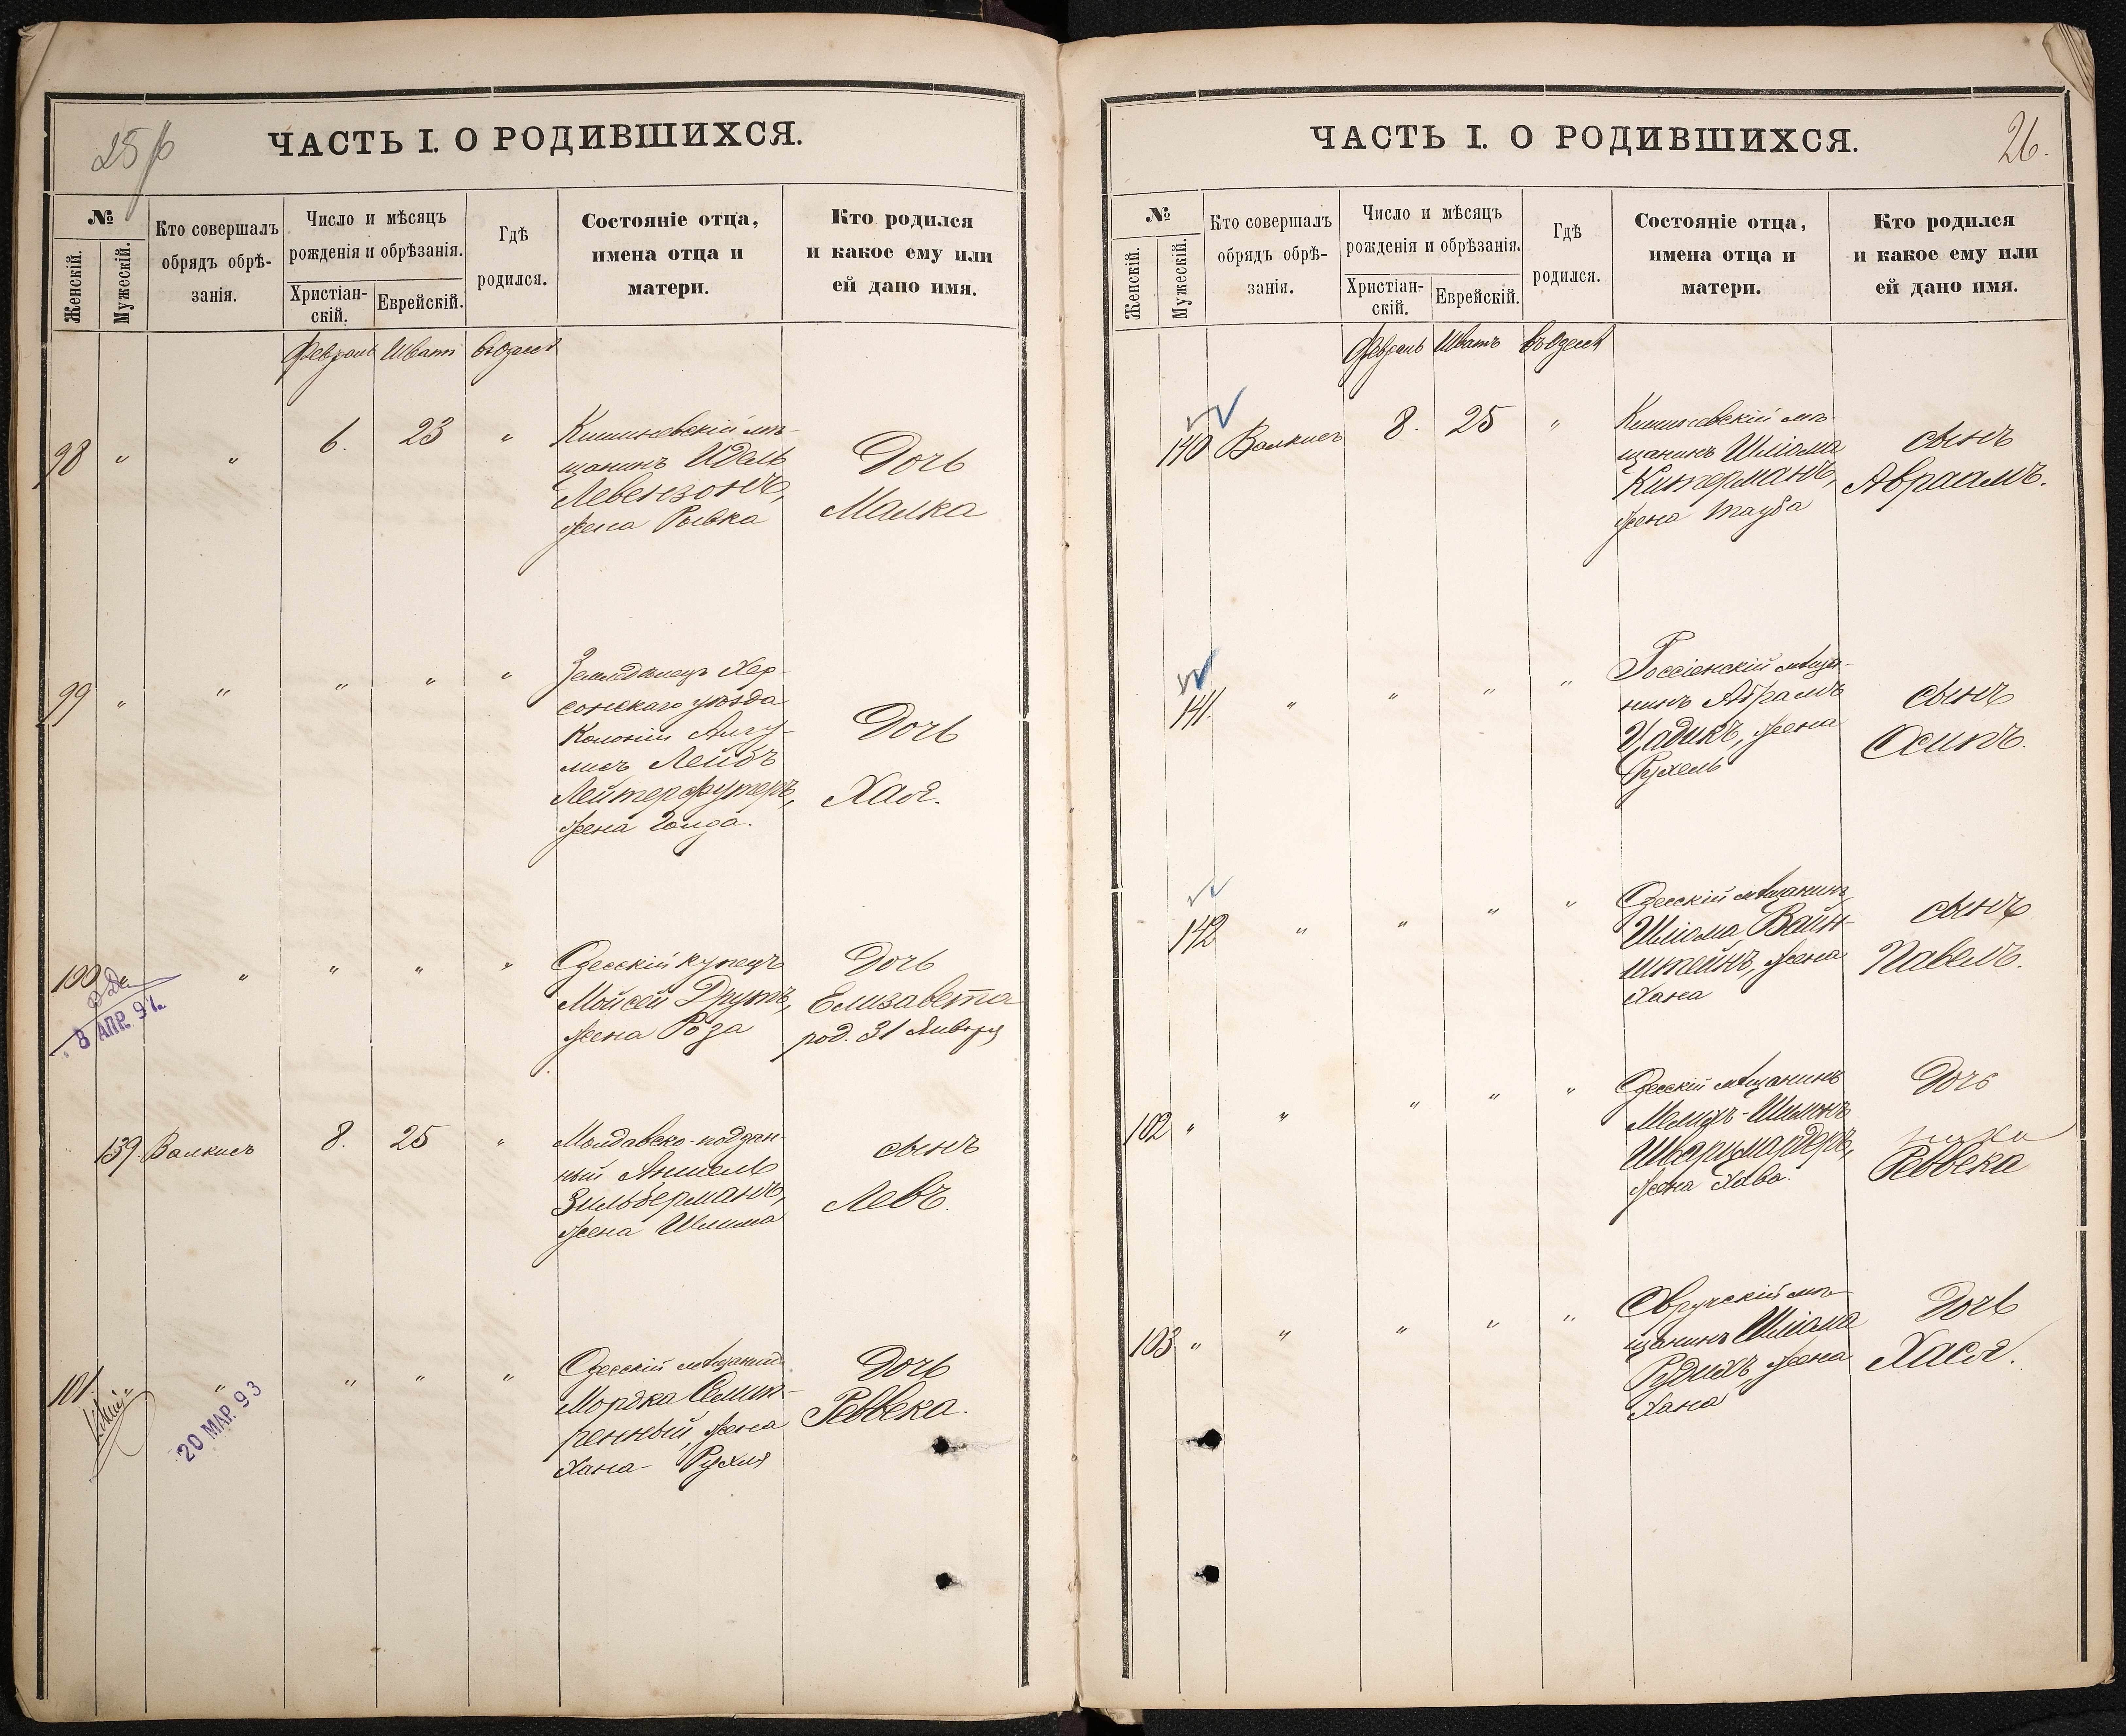 25 об
ЧАСТЬ I. О РОДИВШИХСЯ.
№
Женскій.
Мужескій.
Кто совершалъ
обрядъ обрѣ-
занія.
Число и мѣсяцъ
рожденія и обрѣзанія.
Христіан-
скій.
Еврейскій.
Гдѣ
родился.
Состояніе отца,
имена отца и
матери.
Кто родился
и какое ему или
ей дано имя.
Февраль Шватъ въ Одессѣ
98 " " 6. 23 "
Кишиневскій мѣ-
щанинъ Идель
Левензонъ,
жена Рывка
Дочь
Малка
99 " " " " "
Земледѣлецъ Хер-
сонскаго уѣзда
Колоніи
Лейбъ
Лейтерфутеръ,
жена Голда.
Дочь
Хая.
100 " " " "
8 АПР. 9
Одесскій купецъ
Мойсей Друтъ,
жена Роза
Дочь
Елизавета
род. 31 Января
139. Валкисъ 8. 25 "
Молдавско-поддан-
ный Аншель
Зильберманъ,
жена Шлима
сынъ
Левъ.
101 " " " " "
20 МАР. 93
Одесскій мѣщанинъ
Мордка Смир-
ренный, жена
Хана- Рухля
Дочь
Реввека.
26.
ЧАСТЬ I. О РОДИВШИХСЯ.
№
Женскій.
Мужескій.
Кто совершалъ
обрядъ обрѣ-
занія.
Число и мѣсяцъ
рожденія и обрѣзанія.
Христіан-
скій.
Еврейскій.
Гдѣ
родился.
Состояніе отца,
имена отца и
матери.
Кто родился
и какое ему или
ей дано имя.
Февраль Шватъ въ Одессѣ
140 Валкисъ 8. 25 "
Кишиневскій мѣ-
щанинъ Шліома
Китерманъ,
жена Тауба
сынъ
Авраамъ.
141. " " " "
Россіенскій мѣща-
нинъ Абрамъ
Цадикъ, жена
Рухель
сынъ
Осипъ.
142 " " " "
Одесскій мѣщанинъ
Шліома Вайн-
штейнъ, жена
Хана
сынъ
Павелъ.
102 " " " " "
Одесскій мѣщанинъ
Мелихъ-Шимонъ
Шварцмардеръ,
жена Хава.
Дочь
Реввека
103 " " " " "
Овручскій мѣ-
щанинъ Шліома
Рудихъ, жена
Хана
Дочь
Хася.